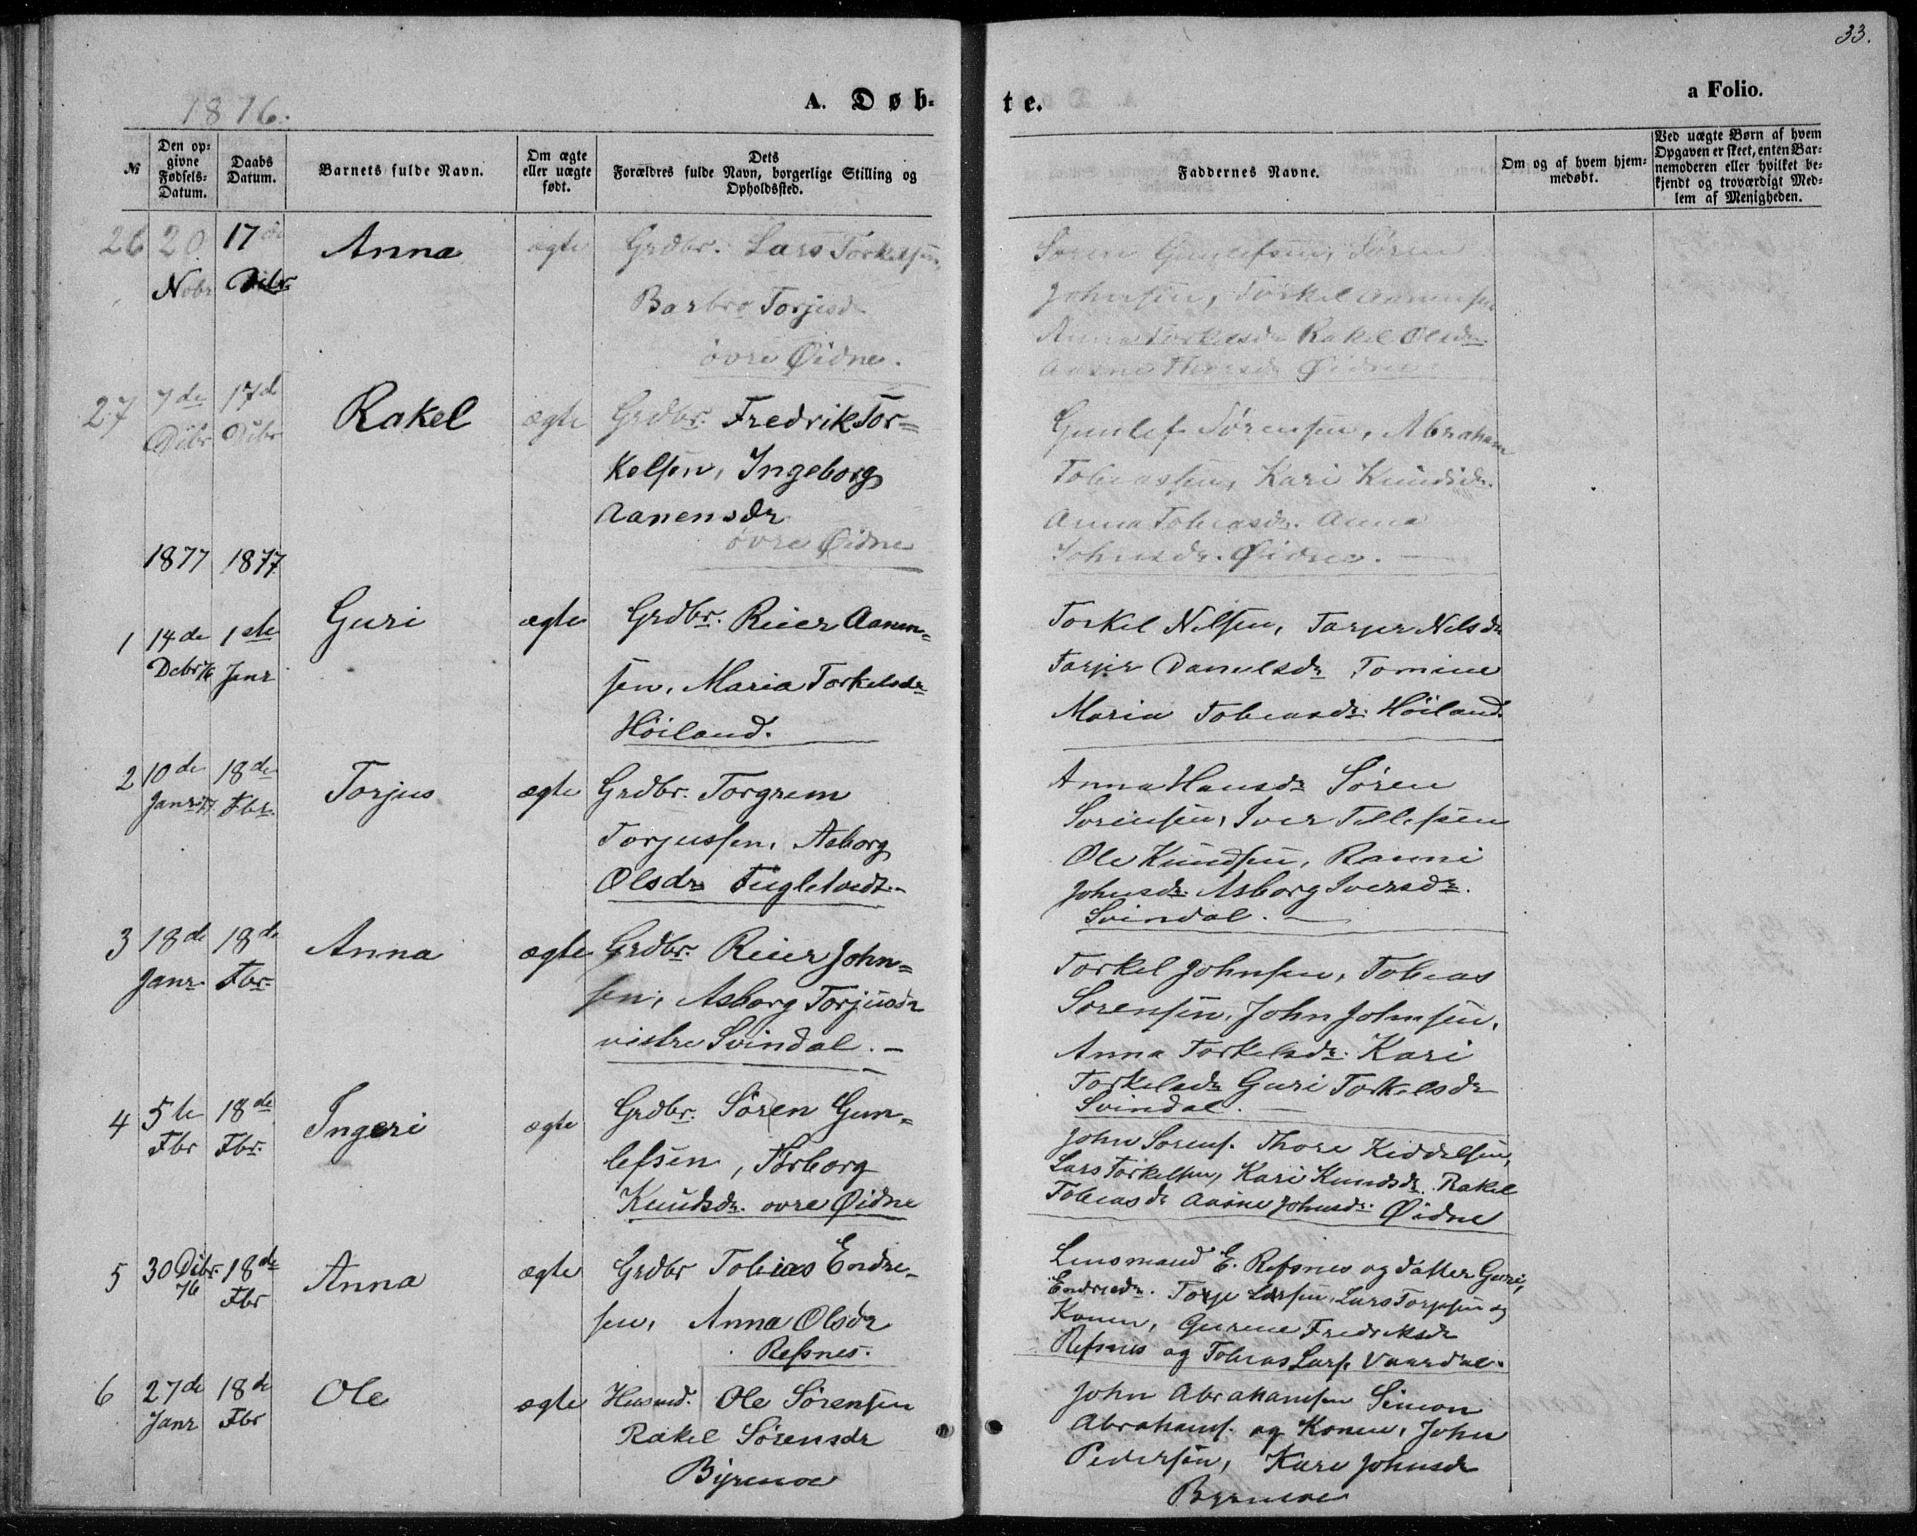 33.
1876.
A. Døb-
te.
a Folio.
№
Den op-
givne
Fødsels-
Datum.
Daabs
Datum.
Barnets fulde Navn.
Om ægte
eller uægte
født.
Dets
Forældres fulde Navn, borgerlige Stilling og
Opholdssted.
Faddernes Navne.
Om og af hvem hjem-
medøbt.
Ved uægte Børn af hvem
Opgaven er skeet, enten Bar-
nemoderen eller hvilket be-
kjendt og troværdigt Med-
lem af Menigheden.
26 20 Nobr 17de Dcbr Anna ægte
Grdbr. Lars Torkelsen
Barbro Torjusd
øvre Øidne.
Søren Gunlefsen, Søren
Johnsen, Torkel Aanensen
Anna Torkelsdr Rakel Olsdr
Øidne
27 7de Dcbr 17de Dcbr Rakel ægte
Grdbr. Fredrik Tor-
kelsen, Ingeborg
Aanensdr
øvre Øidne
Gunlef Sørensen, Abraham
Tobiassen, Kari Knudsdr.
Anna Tobiasdr. Anna
Johnsdr. Øidne.
1877 1877
1 14de Debr 76 1ste Janr Guri ægte
Grdbr. Reier Aanen-
sen, Maria Torkelsdr
Høiland.
Torkel Nilsen, Tarjer Nilsdr
Tarjer Danielsdr Tomine
Maria Tobiasdr. Høiland.
2 10de Janr 77 18de Fbr. Torjus ægte
Grdbr. Torgrem
Torjussen, Asborg
Olsdr Fugletvedt.
Anna Hansdr Søren
Sørensen, Iver Tellefsen
Ole Knudsen, Ranni
Johnsdr. Asborg Iversdr.
Svindal.
3 18de Janr. 18de Fbr. Anna ægte
Grdbr. Reier John-
sen, Asborg Torjusdr
vestre Svindal.
Torkel Johnsen, Tobias
Sørensen, John Johnsen,
Anna Torkelsdr. Kari
Torkelsdr Guri Torkelsdr
Svindal.
4 5te Fbr 18de Fbr. Ingeri ægte
Grdbr. Søren Gun-
lefsen, Torborg
Knudsdr. øvre Øidne
John Sørens. Thore Kiddelsen,
Lars Torkelsen, Kari Knudsdr. Rakel
Tobiasdr Aasne Johnsdr. Øidne
5 30 Dcbr. 76 18de Fbr Anna ægte
Grdbr Tobias Endre-
sen, Anna Olsdr
Refsnes.
Lensmand E. Refsnes og datter Guri,
Endresdr. Torje Larsen, Lars Torjesen og
Konen, Gurine Fredriksdr
Refsnes og Tobias Lars. Vaardal.
6 27de Janr 18de Fbr Ole ægte
Husmd. Ole Sørensen
Rakel Sørensdr
Byremoe
John Abrahamsen Simon
Abrahams. og Konen, John
Pedersen, Kari Johnsdr
Byremoe